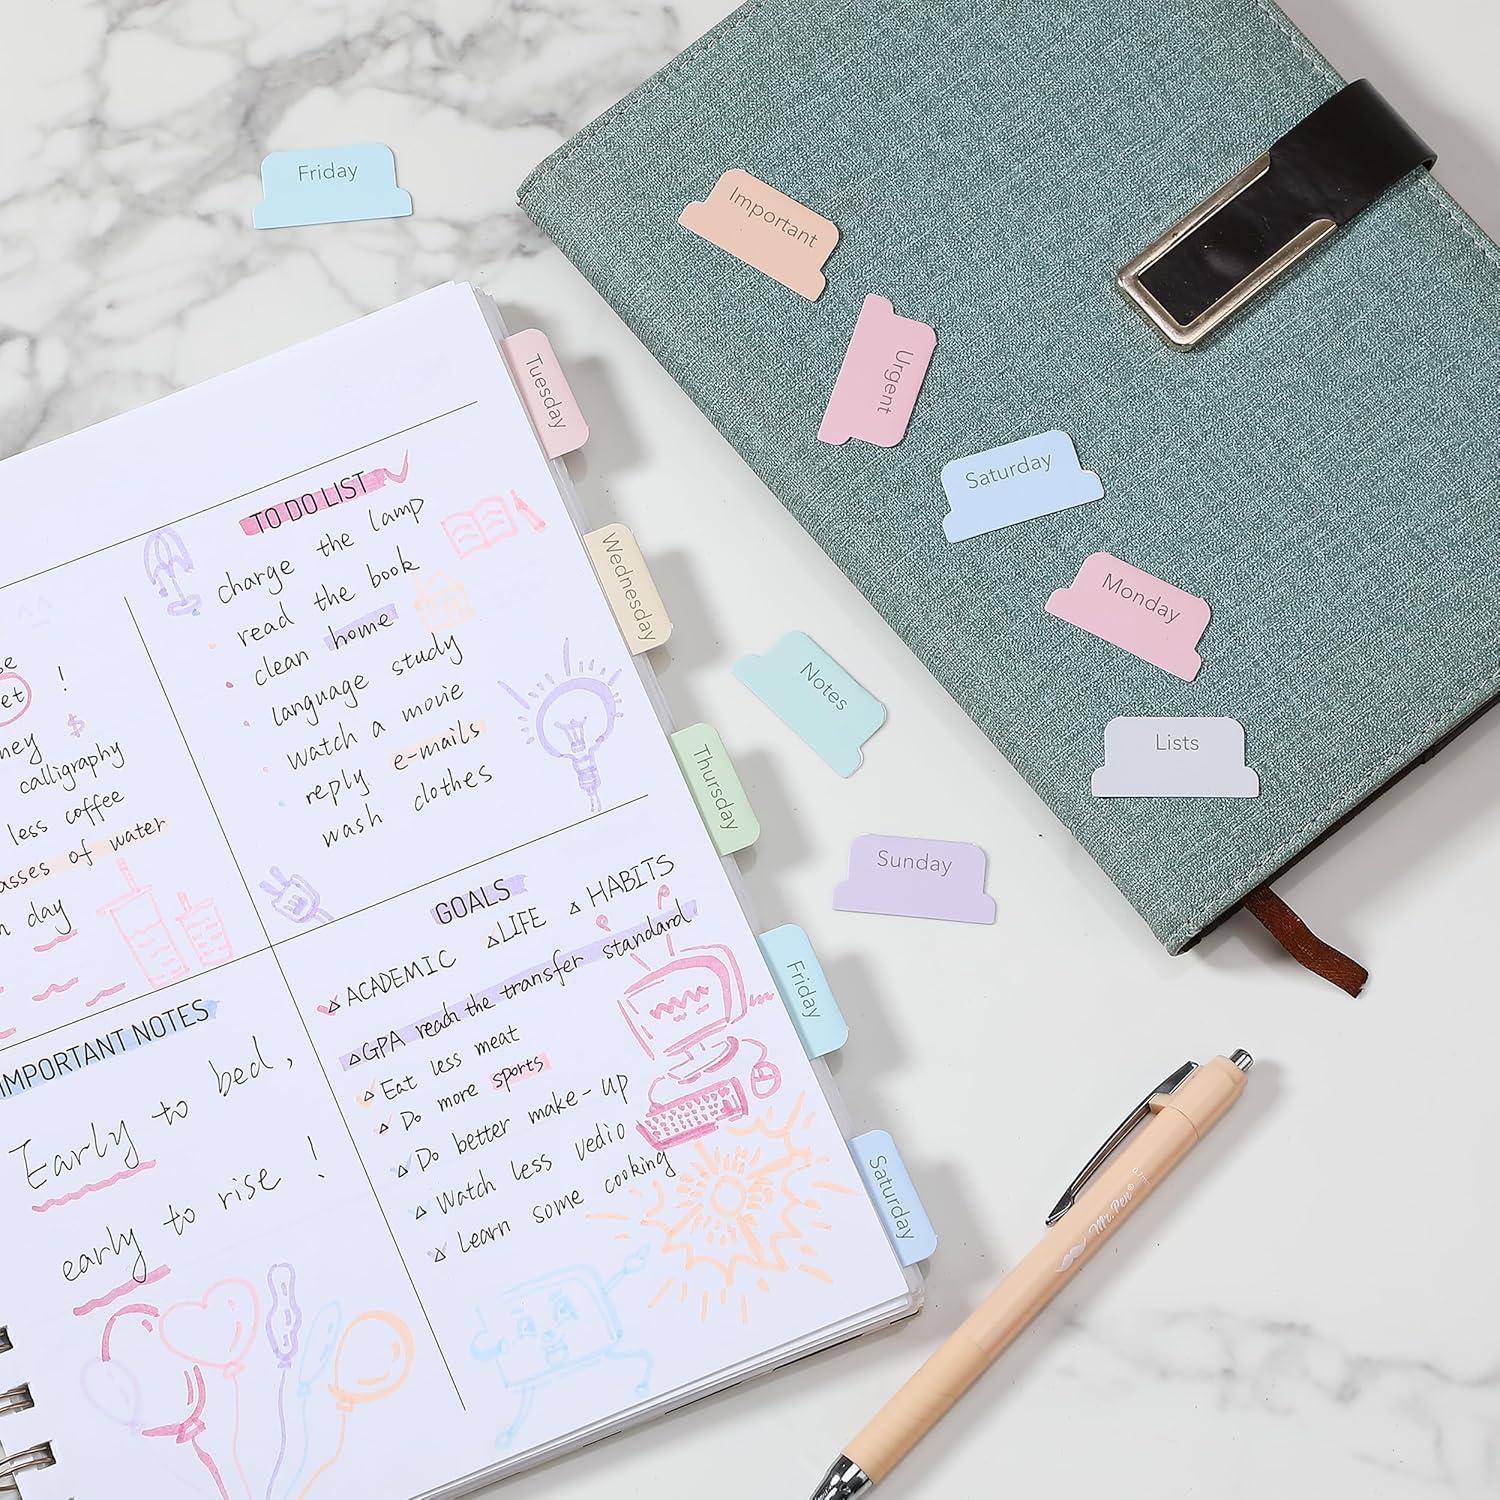 Friday
Important
Urgent
Saturday
Monday
Lists
Notes
Sunday
Tuesday
Wednesday
Thursday
Friday
Saturday
TO DO LIST
charge the lamp
read the book
clean home
language study
watch a movie
reply e-mails
wash clothes
!
$
calligraphy
less coffee
of water
day
GOALS
ACADEMIC LIFE HABITS
GPA reach the transfer standard
Eat less meat
Do more sports
Do better make-up
Watch less vedio
Learn some cooking
IMPORTANT NOTES
Early to bed,
early to rise !
Mr. Pen